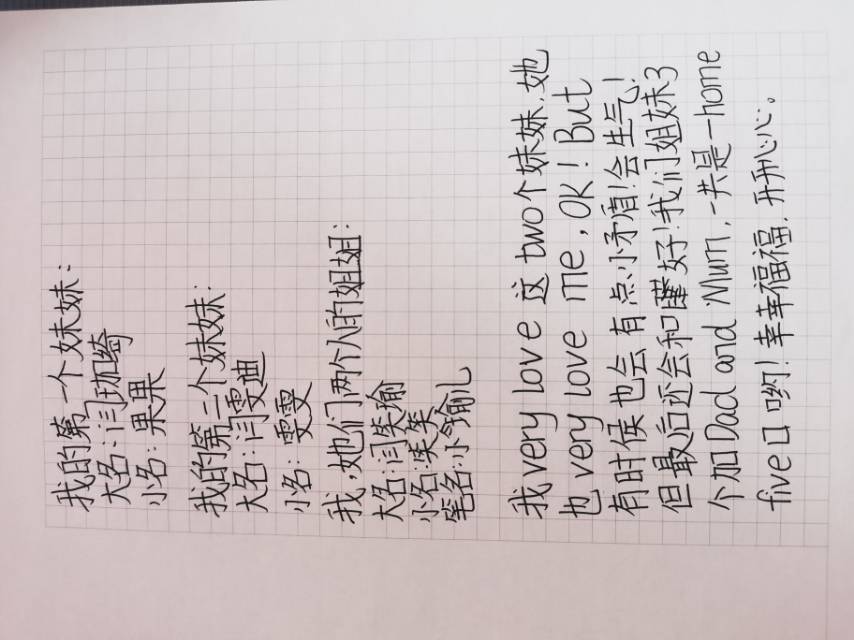 我的第一个妹妹：
大名：闫珈绮
小名：果果
我的第二个妹妹：
大名：闫雯迪
小名：雯雯
我，她们两个人的姐姐：
大名：闫笑瑜
小名：笑笑
笔名：小瑜儿
我very love 这 two个妹妹，她
也 very love me , OK ! But
有时候也会有点小矛盾！会生气！
但最后还会和好！我们姐妹3
个加Dad and Mum，一共是一home
five口哟！幸幸福福，开开心心。